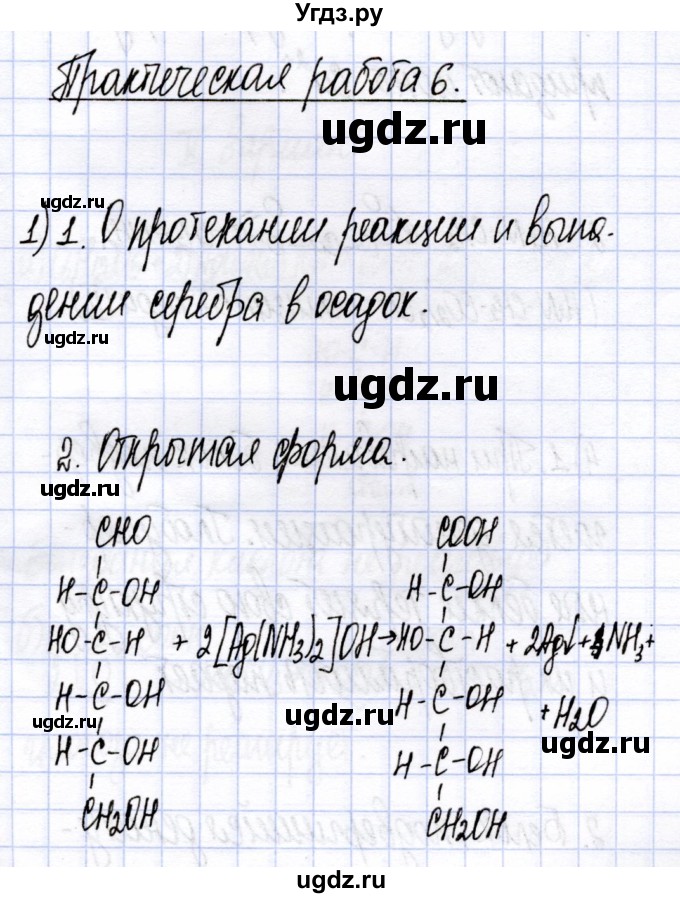 Угдз.ру
Практическая работа 6.
ugdz.ru
ugdz.ru
1) 1. О протекании реакции и выпа-
дении серебра в осадок.
ugdz.ru
ugdz.ru
2. Открытая форма.
ugdz.ru
CHO COOH
ugdz.ru
H-C-OH H-C-OH
HO-C-H + 2[Ag(NH3)2]OH→HO-C-H + 2Ag↓+4NH3+
H-C-OH H-C-OH +H2O
ugdz.ru ugdz.ru
ugdz.ru
H-C-OH H-C-OH
CH2OH CH2OH
ugdz.ru
ugdz.ru